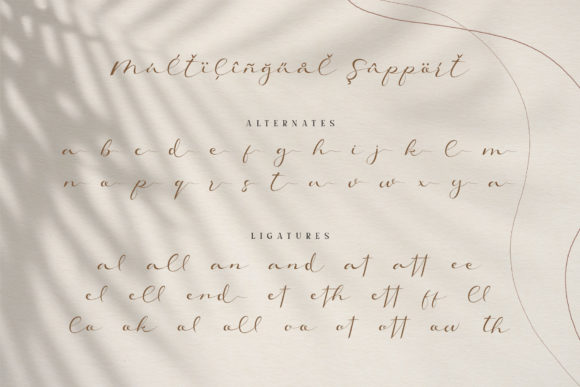 Múltïļîñğüåľ Şûppört
ALTERNATES
a b c d e f g h i j k l m
n o p q r s t u v w x y z
LIGATURES
al all an and at att ee
el ell end et eth ett ff ll
lo ok ol oll oo ot ott ow th